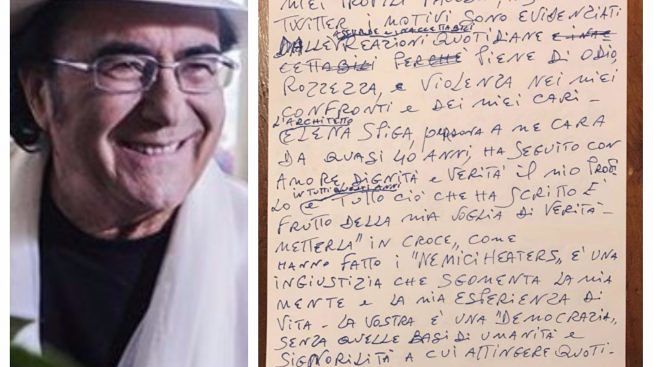 MIEI PROFILI
TWITTER, I MOTIVI SONO EVIDENZIATI
ASSURDE E INACCETTABILI
DALLE REAZIONI QUOTIDIANE E INAC
CETTABILI PERCHÉ PIENE DI ODIO,
ROZZEZZA, E VIOLENZA NEI MIEI
CONFRONTI E DEI MIEI CARI -
L'ARCHITETTO
ELENA SFIGA, PERSONA A ME CARA
DA QUASI 40 ANNI, HA SEGUITO CON
AMORE, DIGNITÀ E VERITÀ IL MIO PROFI
IN TUTTI QUESTI ANNI
LO E TUTTO CIÒ CHE HA SCRITTO È
FRUTTO DELLA MIA VOGLIA DI VERITÀ -
METTERLA "IN CROCE", COME
HANNO FATTO I "NEMICI HEATERS", È UNA
INGIUSTIZIA CHE SGOMENTA LA MIA
MENTE E LA MIA ESPERIENZA DI
VITA - LA VOSTRA È UNA "DEMOCRAZIA",
SENZA QUELLE BASI DI UMANITÀ E
SIGNORILITÀ A CUI ATTINGERE QUOTI-